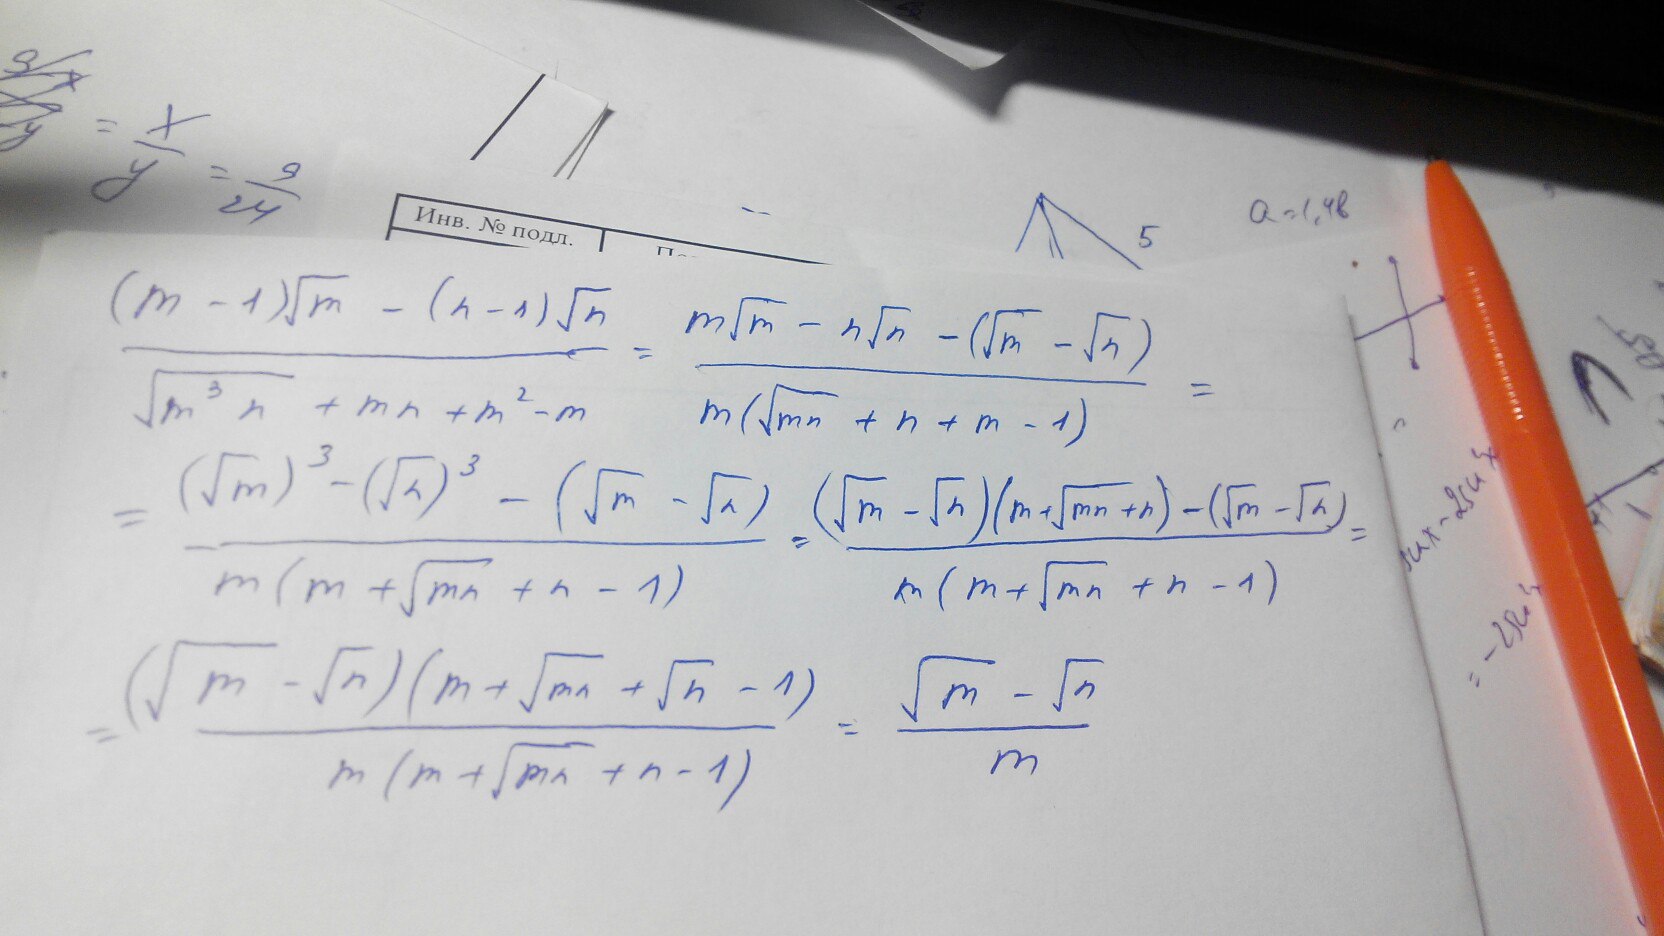 = x/y = 9/24
Инв. № подл.
5
a = 1,4b
((m - 1)√m - (n - 1)√n)/(√(m³n) + mn + m² - m) = (m√m - n√n - (√m - √n))/(m(√(mn) + n + m - 1)) =
= ((√m)³ - (√n)³ - (√m - √n))/(m(m + √(mn) + n - 1)) = ((√m - √n)(m + √(mn) + n) - (√m - √n))/(m(m + √(mn) + n - 1)) =
= ((√m - √n)(m + √(mn) + √n - 1))/(m(m + √(mn) + n - 1)) = (√m - √n)/m